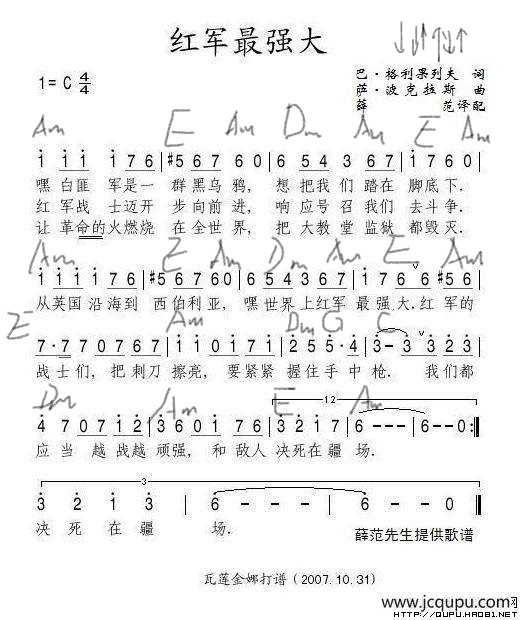 红军最强大
1=C 4/4
巴·格利果列夫 词
萨·波克拉斯 曲
薛 范译配
Am E Am Dm Am E Am
i i i i 7 6 | #5 6 7 6 0 | 6 5 4 3 6 7 | i 7 0 0 |
嘿 白匪 军是一 群黑乌鸦, 想把我们 踏在 脚底下.
红军战 士迈开 步向前进, 响应号召我们 去斗争.
让革命的火燃烧 在全世界, 把大教堂监狱 都毁灭.
Am E Am Dm Am E Am
从英国沿海到 西伯利亚, 嘿世界上红军 最强大.红军的
E Am Dm G C
7·7 7 0 7 6 7 | i i 0 i 7 i | 2 5 5·4 | 3-3 3 2 3 |
战士们, 把刺刀 擦亮, 要紧紧 握住手中枪. 我们都
Dm Am E Am
12
4 7 0 7 1 2 | 3 6 0 1 7 6 | 3 2 1 7 | 6--- | 6--0 :|
应当 越战越 顽强, 和敌人 决死在疆 场.
3
3 2 1 3 | 6 - - - | 6 - - 0 ||
决 死 在 疆 场.
薛范先生提供歌谱
瓦莲金娜打谱 (2007.10.31)
www.jcqupu.com
http://QUPU.HAO81.NET